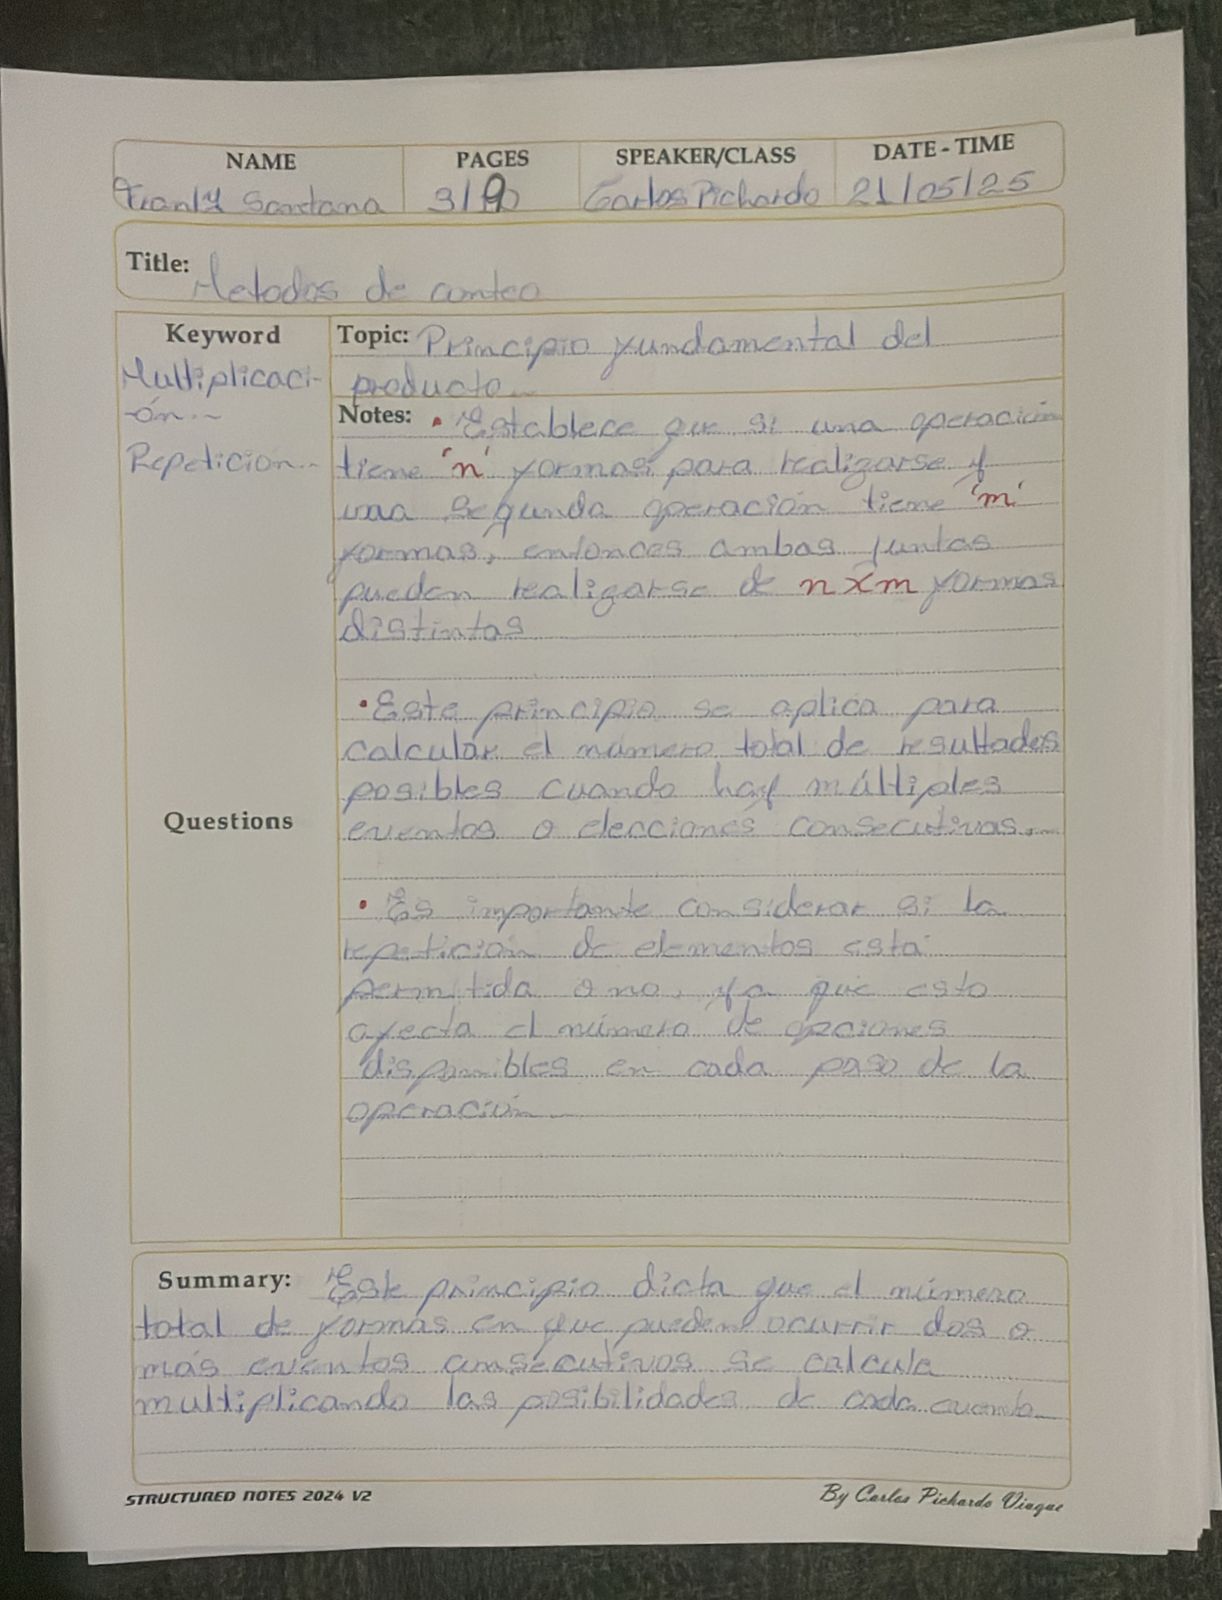 NAME PAGES SPEAKER/CLASS DATE - TIME
Santana 3/ Carlos Pichardo 21/05/25
Title: Metodos de conteo
Keyword
Multiplicaci-
-ón...
Repeticion...
Topic: Principio fundamental del
producto...
Notes: • Establece que si una operación
tiene 'n' formas para realizarse y
una segunda operación tiene 'm'
formas, entonces ambas juntas
pueden realizarse de n x m formas
distintas
• Este principio se aplica para
calcular el número total de resultados
posibles cuando hay múltiples
eventos o elecciones consecutivas...
Questions
• Es importante considerar si la
repetición de elementos está
permitida o no, ya que esto
afecta el número de opciones
disponibles en cada paso de la
operación.
Summary: Este principio dicta que el número
total de formas en que pueden ocurrir dos o
más eventos consecutivos se calcula
multiplicando las posibilidades de cada evento
STRUCTURED NOTES 2024 V2
By Carlos Pichardo Viuque